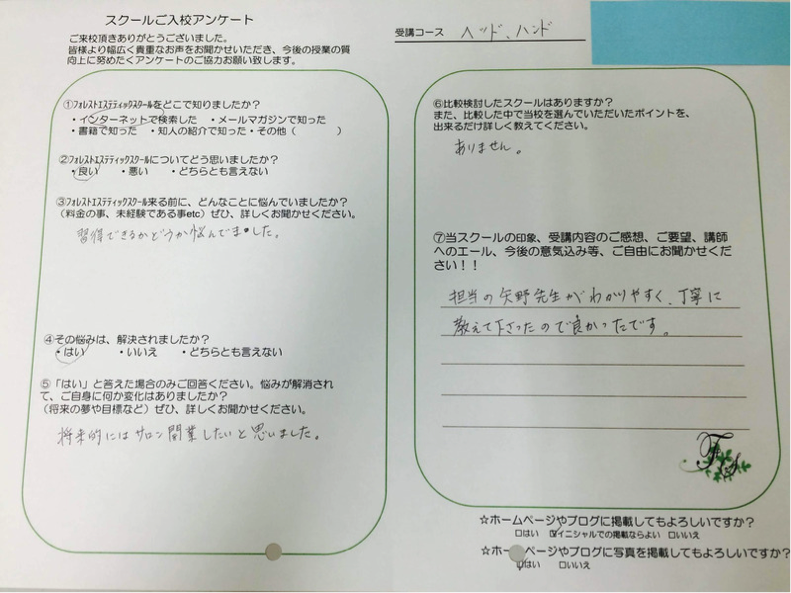 スクールご入校アンケート
ご来校頂きありがとうございました。
皆様より幅広く貴重なお声をお聞かせいただき、今後の授業の質
向上に努めたくアンケートのご協力お願い致します。
受講コース ヘッド、ハンド
①ﾌｫﾚｽﾄｴｽﾃﾃｨｯｸｽｸｰﾙをどこで知りましたか？
・インターネットで検索した ・メールマガジンで知った
・書籍で知った ・知人の紹介で知った・その他（ ）
②ﾌｫﾚｽﾄｴｽﾃﾃｨｯｸｽｸｰﾙについてどう思いましたか？
・良い ・悪い ・どちらとも言えない
③ﾌｫﾚｽﾄｴｽﾃﾃｨｯｸｽｸｰﾙ来る前に、どんなことに悩んでいましたか？
（料金の事、未経験である事etc）ぜひ、詳しくお聞かせください。
習得できるかどうか悩んでました。
④その悩みは、解決されましたか？
・はい ・いいえ ・どちらとも言えない
⑤「はい」と答えた場合のみご回答ください。悩みが解消され
て、ご自身に何か変化はありましたか？
（将来の夢や目標など）ぜひ、詳しくお聞かせください。
将来的にはサロン開業したいと思いました。
⑥比較検討したスクールはありますか？
また、比較した中で当校を選んでいただいたポイントを、
出来るだけ詳しく教えてください。
ありません。
⑦当スクールの印象、受講内容のご感想、ご要望、講師
へのエール、今後の意気込み等、ご自由にお聞かせくだ
さい！！
担当の矢野先生がわかりやすく、丁寧に
教えて下さったので良かったです。
FS
☆ホームページやブログに掲載してもよろしいですか？
□はい ☑イニシャルでの掲載ならよい □いいえ
☆ホームページやブログに写真を掲載してもよろしいですか？
☑はい □いいえ